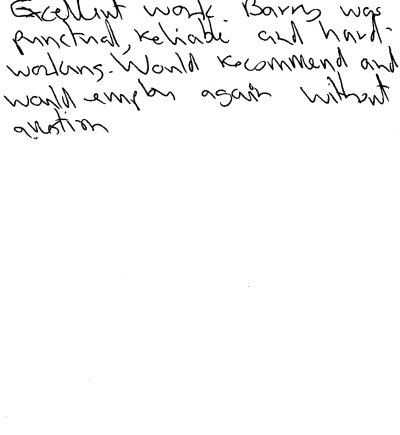 Excellent work. Barry was
punctual, reliable and hard-
working. Would recommend and
would employ again without
question